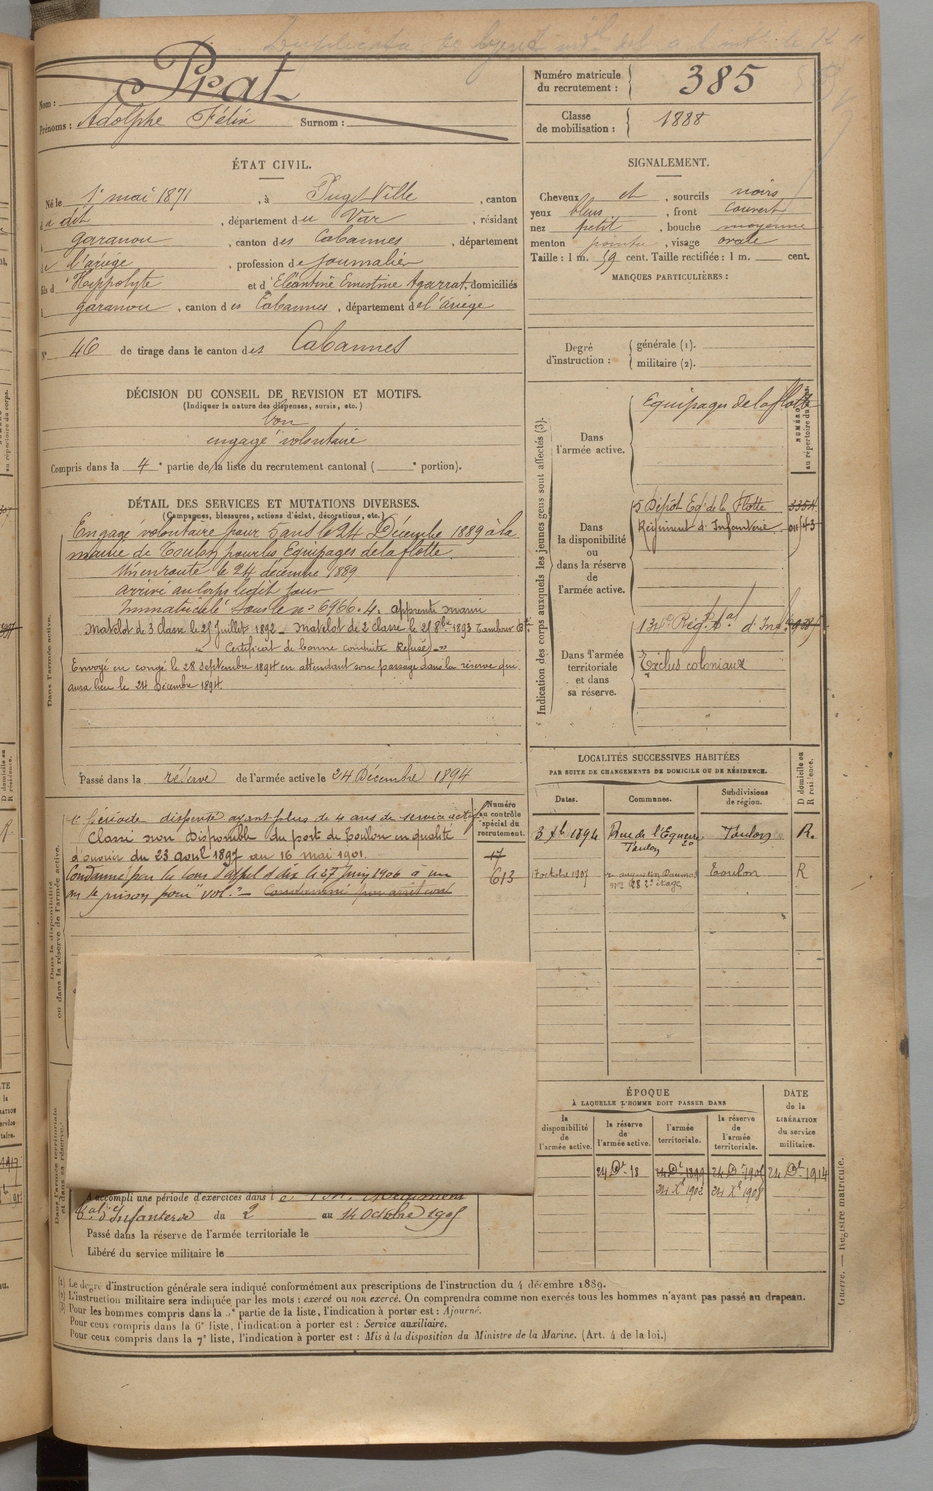 Nom : Prat
Prénoms : Adolphe Félix Surnom :
Numéro matricule du recrutement : 385
Classe de mobilisation : 1888
ÉTAT CIVIL.
Né le 1er mai 1871, à Puget Ville, canton
du dit, département du Var, résidant
à garanou, canton des Cabannes, département
de l'ariège, profession de journalier
fils d'Hippolyte et d'Eléantine Ernestine Agarrat, domiciliés
à garanou, canton des Cabannes, département de l'ariège
N° 46 de tirage dans le canton des Cabannes
SIGNALEMENT.
Cheveux et, sourcils noirs
yeux bleus, front couvert
nez petit, bouche moyenne
menton pointu, visage ovale
Taille : 1 m. 59 cent. Taille rectifiée : 1 m. cent.
MARQUES PARTICULIÈRES :
Degré d'instruction : générale (1).
militaire (2).
DÉCISION DU CONSEIL DE REVISION ET MOTIFS.
(Indiquer la nature des dispenses, sursis, etc.)
bon
engagé volontaire
Compris dans la 4e partie de la liste du recrutement cantonal ( e portion).
DÉTAIL DES SERVICES ET MUTATIONS DIVERSES.
(Campagnes, blessures, actions d'éclat, décorations, etc.)
Dans l'armée active.
Engagé volontaire pour 5 ans le 24 Décembre 1889 à la
mairie de Toulon pour les Equipages de la flotte
Mis en route le 24 décembre 1889
arrivé au corps le dit jour
Immatriculé sous le no 6966.4. apprenti marin
Matelot de 3e classe le 25 Juillet 1892 – Matelot de 2 classe le 25 8bre 1893 Tambour
Certificat de bonne conduite Refusé
Envoyé en congé le 28 Septembre 1894 en attendant son passage dans la réserve qui
aura lieu le 24 Décembre 1894.
Passé dans la réserve de l'armée active le 24 Décembre 1894
Dans la disponibilité ou dans la réserve de l'armée active.
1e période dispensé ayant plus de 4 ans de service actif
Classé non Disponible du port de Toulon en qualité
d'ouvrier du 23 avril 1897 au 16 mai 1901.
Condamné par la cour d'appel d'Aix le 27 juin 1906 à un
an de prison pour "vol". – Condamné par arrêt cont
Numéro au contrôle spécial du recrutement.
17
613
Dans l'armée territoriale et dans sa réserve.
A accompli une période d'exercices dans le
d'Infanterie du 2 au 14 Octobre 1905
Passé dans la réserve de l'armée territoriale le
Libéré du service militaire le
Indication des corps auxquels les jeunes gens sont affectés (3).
Dans l'armée active.
Equipages de la flotte
Dans la disponibilité ou dans la réserve de l'armée active.
5 Dépôt Eq. de la Flotte
Régiment d'Infanterie
Dans l'armée territoriale et dans sa réserve.
Exclus coloniaux
LOCALITÉS SUCCESSIVES HABITÉES
PAR SUITE DE CHANGEMENTS DE DOMICILE OU DE RÉSIDENCE.
Dates. Communes. Subdivisions de région. D domicile ou R résidence.
3 Xbre 1894 Toulon Toulon R.
7 octobre 1905 Toulon R
ÉPOQUE
À LAQUELLE L'HOMME DOIT PASSER DANS
la disponibilité de l'armée active.
la réserve de l'armée active.
l'armée territoriale.
la réserve de l'armée territoriale.
DATE de la LIBÉRATION du service militaire.
24 Xbre 1902 24 Xbre 1908
24 Dbre 1914
(1) Le degré d'instruction générale sera indiqué conformément aux prescriptions de l'instruction du 4 décembre 1889.
(2) L'instruction militaire sera indiquée par les mots : exercé ou non exercé. On comprendra comme non exercés tous les hommes n'ayant pas passé au drapeau.
(3) Pour les hommes compris dans la 5e partie de la liste, l'indication à porter est : Ajourné.
Pour ceux compris dans la 6e liste, l'indication à porter est : Service auxiliaire.
Pour ceux compris dans la 7e liste, l'indication à porter est : Mis à la disposition du Ministre de la Marine. (Art. 4 de la loi.)
Guerre. — Registre matricule.